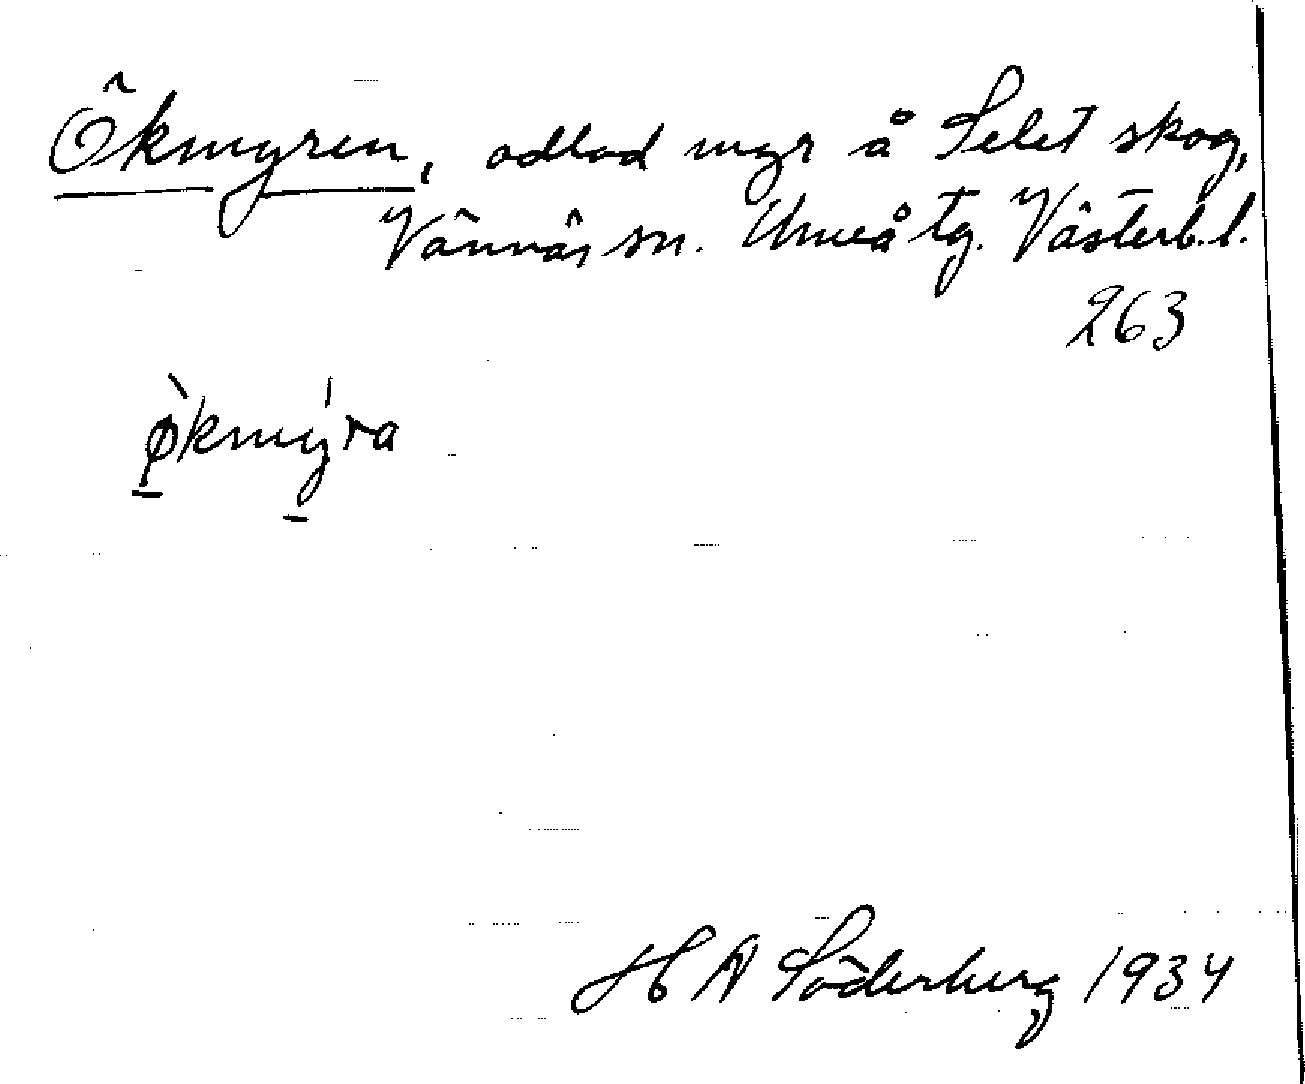 Ökmyren, odlad myr å Selet skog,
Vännäs sn. Umeå tg. Västerb.l.
263
ø̀kmýra
H A Söderberg 1934